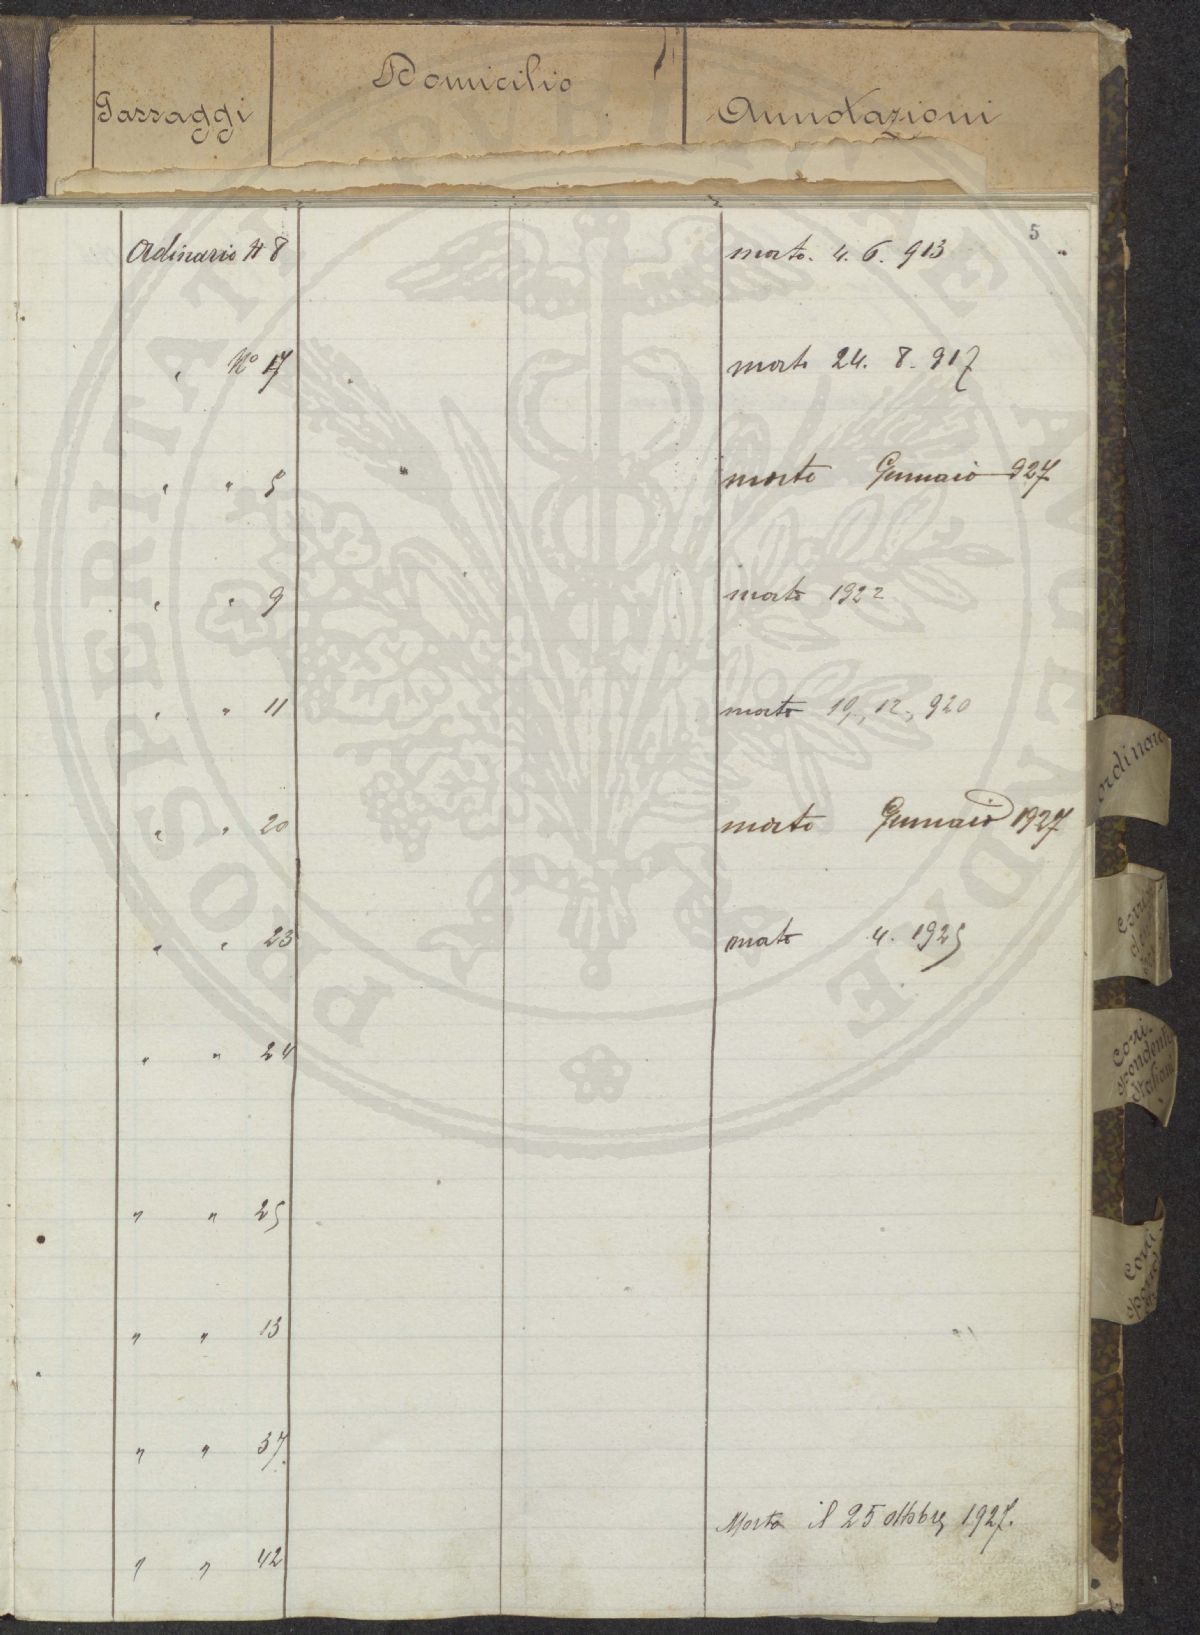 Passaggi Domicilio Annotazioni
5
Ordinario N 8 morto. 4. 6. 913
" No 17 morto 24. 8. 917
" " 5 morto Gennaio 927
" " 9 morto 1922
" " 11 morto 19, 12, 920
" " 20 morto Gennaio 1927
" " 23 morto 4. 1925
" " 24
" " 25
" " 13
" " 37.
Morto il 25 ottobre 1927.
" " 42
ordinari
Corri
spondenti
italiani
Corri
PROSPERITATI PUBLICAE AUGENDAE